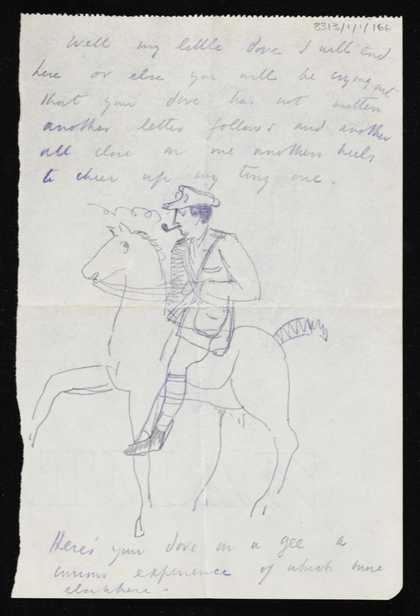 8313/1/1/166
Well my little dove I will end
here or else you will be crying out
that your dove has not written
another letter follows and another
all close on one anothers heels
to cheer up my tiny one.
Here's your dove on a gee a
curious experience of which more
elsewhere.